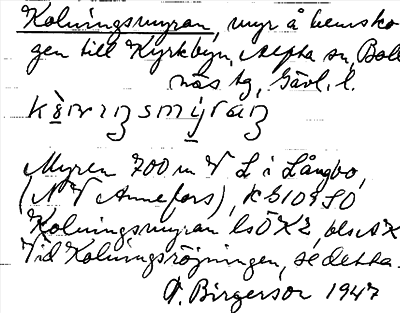 Kolningsmyran, myr å hemsko
gen till Kyrkbyn, Alfta sn, Boll
näs tg, Gävl. l.
Myren 700 m V L i Långbo,
(NV Annefors), K 5109 SO
Kolningsmyran
Vid Kolningsröjningen, se detta.
Birgerson 1947